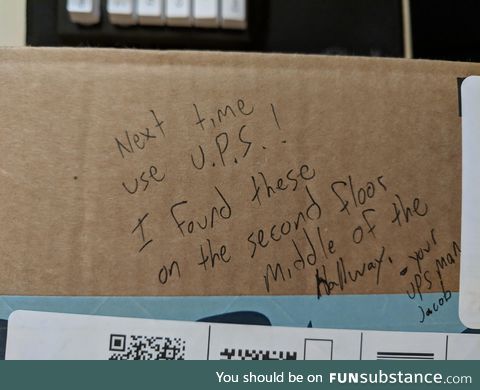 Next time
use U.P.S.!
I found these
on the second floor
middle of the
hallway. - your
UPS man
Jacob
You should be on FUNsubstance.com